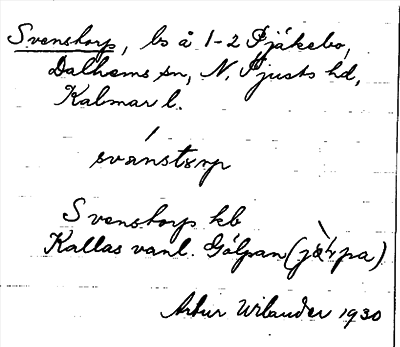 Svenstorp, bs å 1-2 Pjäkebo,
Dalhems sn, N. Tjusts hd,
Kalmar l.
svänstorp
Svenstorp kb
Kallas vanl. Gölpan (
Artur Wilander 1930